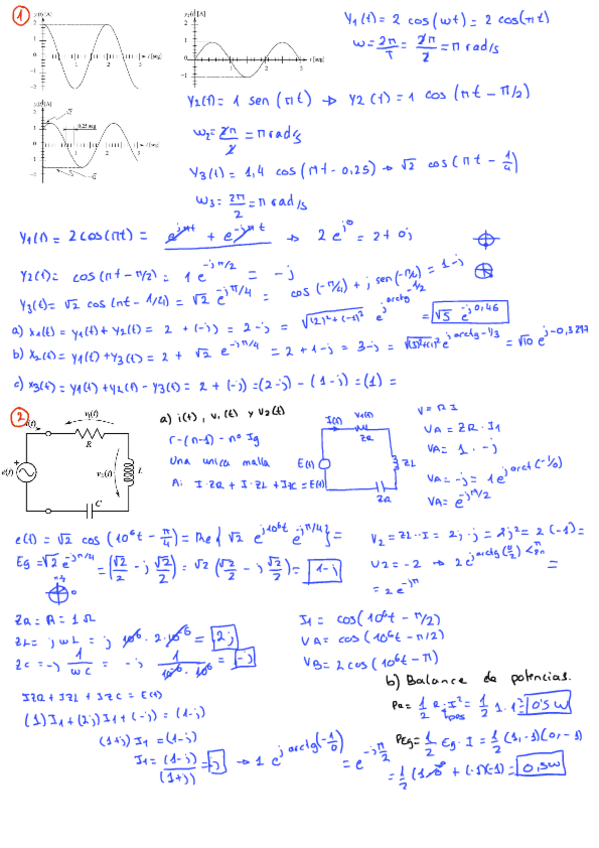 1
y₁(t) [A]
y₂(t) [A]
t [seg]
y₁(t) = 2 cos(wt) = 2 cos(πt)
w = 2π/T = 2π/2 = π rad/s
y₂(t) = 1 sen(πt) → y₂(t) = 1 cos(πt - π/2)
w₂ = 2π/2 = π rad/s
0,25 seg
y₃(t) = 1,4 cos(πt - 0,25) → √2 cos(πt - 1/4)
w₃ = 2π/2 = π rad/s
y₁(t) = 2 cos(πt) = e^jπt + e^-jπt → 2 e^j0 = 2 + 0j
y₂(t) = cos(πt - π/2) = 1 e^-jπ/2 = -j
y₃(t) = √2 cos(πt - 1/4) = √2 e^-jπ/4 = cos(-π/4) + j sen(-π/4) = 1-j
a) x₁(t) = y₁(t) + y₂(t) = 2 + (-j) = 2-j = √(2)²+(-1)² e^j arctg -1/2 = √5 e^j0,46
b) x₂(t) = y₁(t) + y₃(t) = 2 + √2 e^-jπ/4 = 2 + 1-j = 3-j = √(3)²+1² e^j arctg -1/3 = √10 e^j-0,3217
c) x₃(t) = y₁(t) + y₂(t) - y₃(t) = 2 + (-j) = (2-j) - (1-j) = (1) =
2
i(t)
v₁(t)
R
e(t)
v₂(t)
L
C
a) i(t), v₁(t) y v₂(t)
r-(n-1) - nº Ig
Una unica malla
A: I·ZR + I·ZL + IZC = E(t)
I(t)
V₁(t)
ZR
E(t)
ZL
V = R I
VA = ZR · I₁
VA = 1 · -j
VA = -j = 1 e^j arct(-1/0)
VA = e^-jπ/2
e(t) = √2 cos(10⁶t - π/4) = Re{√2 e^j10⁶t e^-jπ/4} =
Eg = √2 e^-jπ/4 = (√2/2 - j √2/2) = √2 (√2/2 - j √2/2) = 1-j
V₂ = ZL · I = 2j · -j = -2j² = 2(-1) =
V₂ = -2 → 2 e^j arctg(0/2) =
= 2 e^-jπ
ZR = R = 1 Ω
ZL = j wL = j 10⁶ · 2·10⁻⁶ = 2j
ZC = -j 1/wC = -j 1/10⁻⁶·10⁶ = -j
I₁ = cos(10⁶t - π/2)
VA = cos(10⁶t - π/2)
VB = 2 cos(10⁶t - π)
b) Balance de potencias.
IZR + IZL + IZC = E(t)
(1) I₁ + (2j) I₁ + (-j) = (1-j)
(1+j) I₁ = (1-j)
I₁ = (1-j)/(1+j) = -j → 1 e^j arctg(-1/0) = e^-jπ/2
PR = 1/2 R · I² = 1/2 1·1² = 0'5 W
PEg = 1/2 Eg · I = 1/2 (1,-1)(0,-1)
= 1/2 (1·0 + (-1)(-1)) = 0,5W